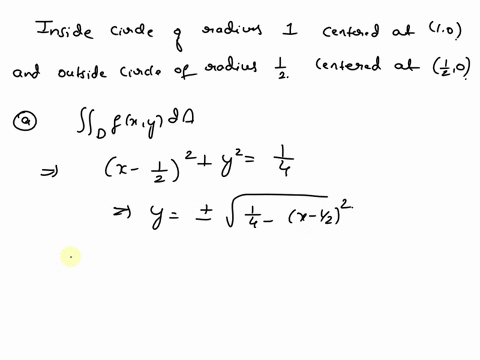 Inside circle of radius 1 centered at (1,0)
and outside circle of radius 1/2 centered at (1/2,0)
(a) ∬_D f(x,y) dA
⇒ (x - 1/2)² + y² = 1/4
⇒ y = ± √(1/4 - (x-1/2)²)